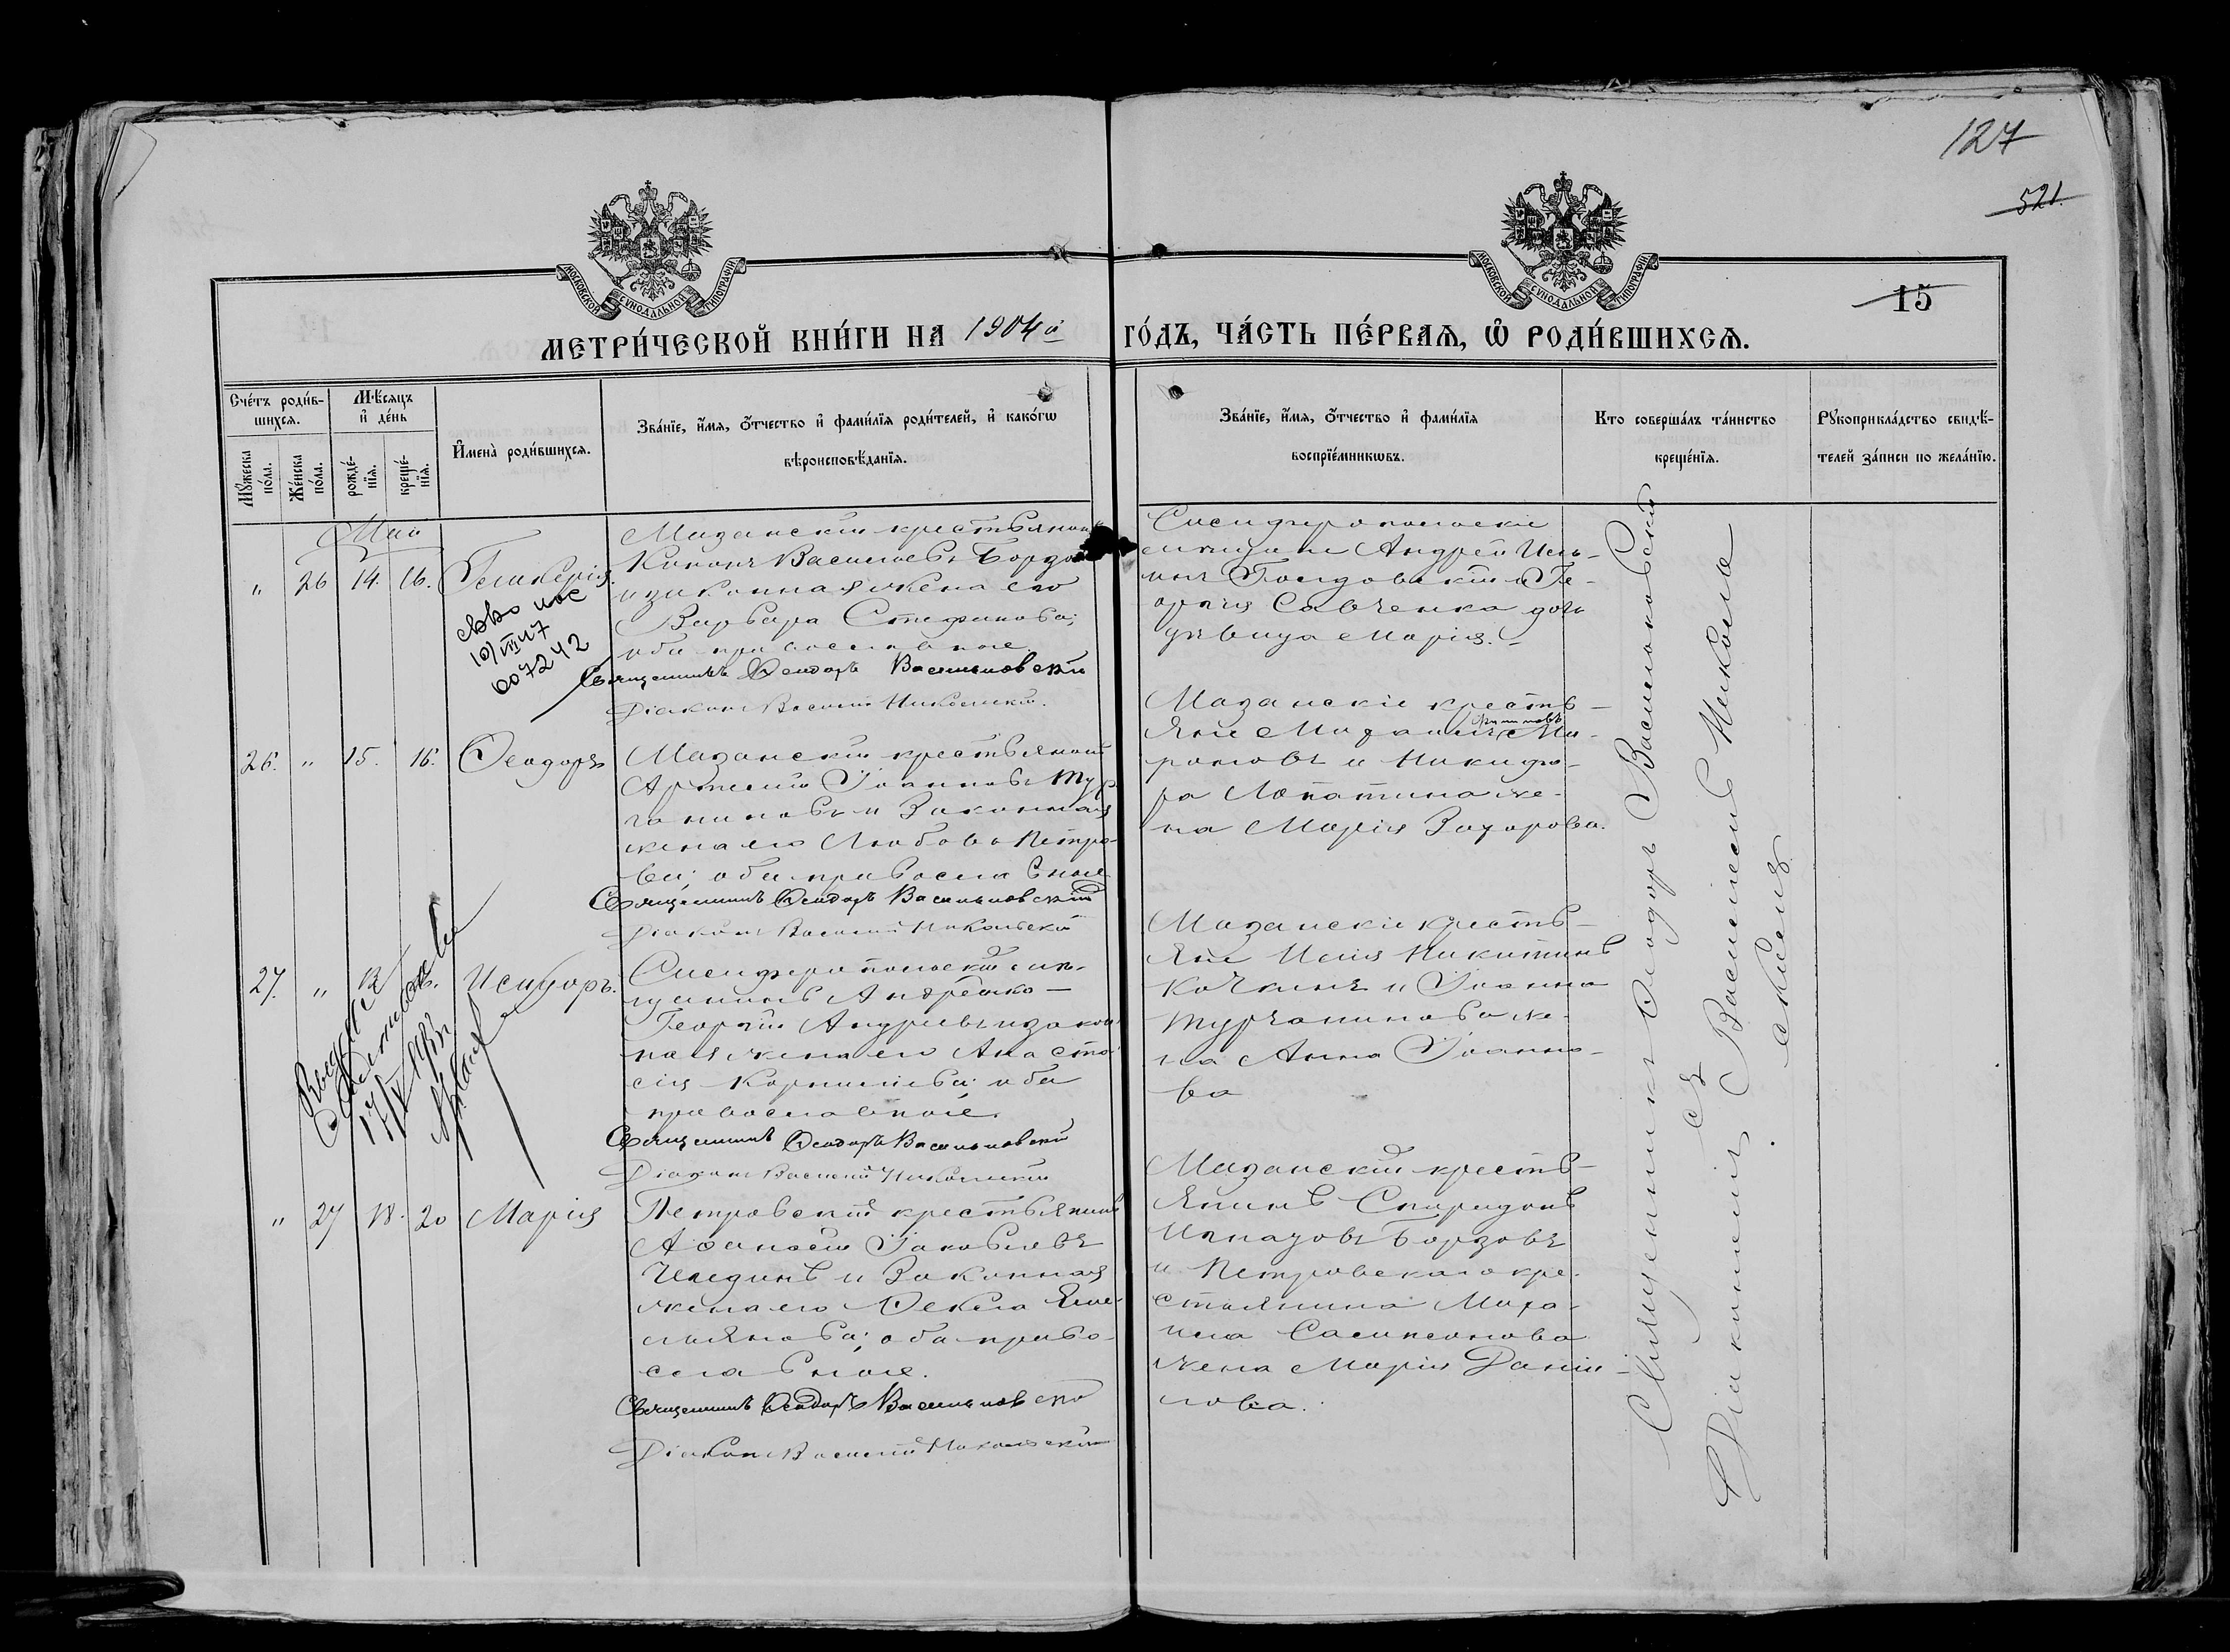 127
521.
МОСКОВСКОЙ СУНОДАЛЬНОЙ ТИПОГРАФІИ
МОСКОВСКОЙ СУНОДАЛЬНОЙ ТИПОГРАФІИ
15
МЕТРИ́ЧЕСКОЙ КНИ́ГИ НА 1904й ГО́ДЪ, ЧА́СТЬ ПЕ́РВАѦ, Ѡ РОДИ́ВШИХСѦ.
Сче́тъ роди́в-
шихсѧ.
Мѣ́сяцъ
и҆ де́нь
Мꙋ́жеска по́ла.
Же́нска по́ла.
рожде́-
нїѧ.
креще́-
нїѧ.
И҆мена̀ роди́вшихсѧ.
Зва́нїе, и҆́мѧ, ѻ҆́тчество и҆ фами́лїѧ роди́телей, и҆ како́гѡ
вѣроисповѣ́данїѧ.
Зва́нїе, и҆́мѧ, ѻ҆́тчество и҆ фами́лїѧ
воспрїе́мникѡвъ.
Кто соверша́лъ та́инство
креще́нїѧ.
Рꙋкоприкла́дство свидѣ́-
телей за́писи по жела́нїю.
Май
" 26 14. 16. Гликерія.
10/VIII 47
007242
Мазанскій крестьянинъ
Кононъ Васильевъ
и законная жена его
Варвара Стефанова;
оба православные.
Священникъ Ѳеодоръ Васильковскій
Діаконъ Василій Никольскій.
Симферопольскіе
мѣщане Андрей Иль-
инъ и Ге-
оргія Савченка дочь
дѣвица Марія.
26. " 15. 16. Ѳеодоръ
Мазанскій крестьянинъ
Артемій Іоанновъ Тур-
чаниновъ и законная
жена его Любовь Петро-
ва; оба православные
Священникъ Ѳеодоръ Васильковскій
Діаконъ Василій Никольскій
Мазанскіе кресть-
яне Михаилъ Ми-
роновъ и Никифо-
ра Лопатина же-
на Марія Захарова.
27. " Исидоръ.
Симферопольскій мѣ-
щанинъ Андрейко-
Георгій Андреевъ и закон-
ная жена его Анаста-
сія Корнилiева; оба
православные.
Священникъ Ѳеодоръ Васильковскій
Діаконъ Василій Никольскій
Мазанскіе кресть-
яне Илія Никитинъ
Кочкинъ и Іоанна
Турчанинова же-
на Анна Іоанно-
ва
17/V
" 27 18. 20 Марія
Петровскій крестьянинъ
Аѳанасій Іаковлевъ
Чалединъ и законная
жена его Ѳекла Еме-
льянова; оба право-
славные.
Священникъ Ѳеодоръ Васильковскій
Діаконъ Василій Никольскій
Мазанскій кресть-
янинъ Спиридонъ
Борзовъ
и Петровскаго кре-
стьянина Миха-
ила Сампсонова
жена Марія Даніи-
лова.
Священникъ Ѳеодоръ Васильковскій
съ
Діакономъ Василіемъ Николь-
скимъ